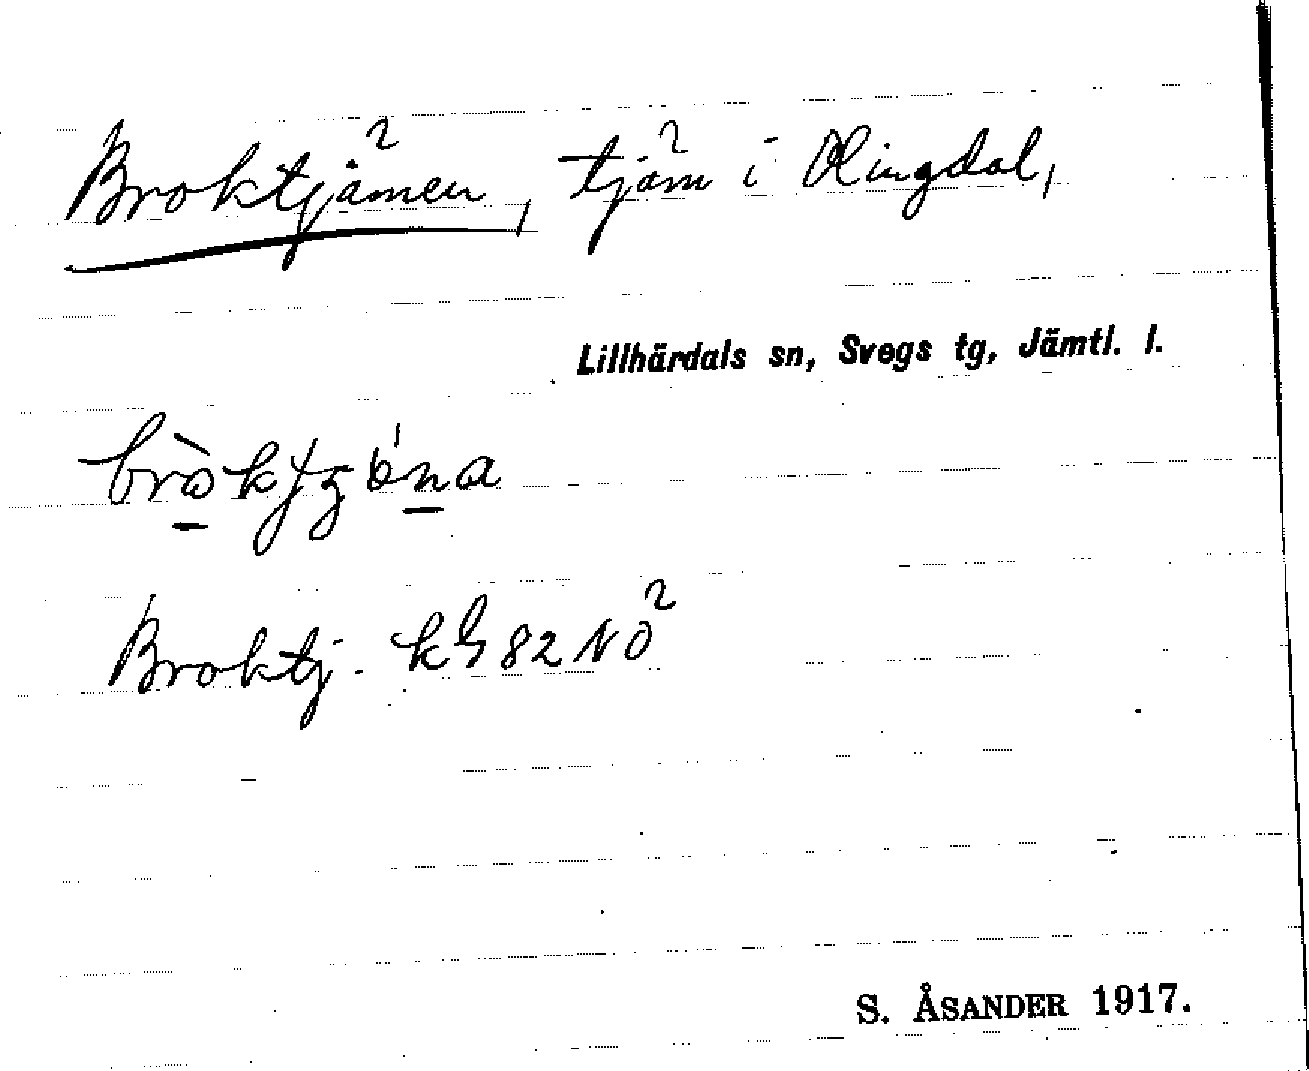 Broktjärnen, tjärn i Olingdal,
Lillhärdals sn, Svegs tg, Jämtl. l.
Broktj. kG 82 NO
S. ÅSANDER 1917.